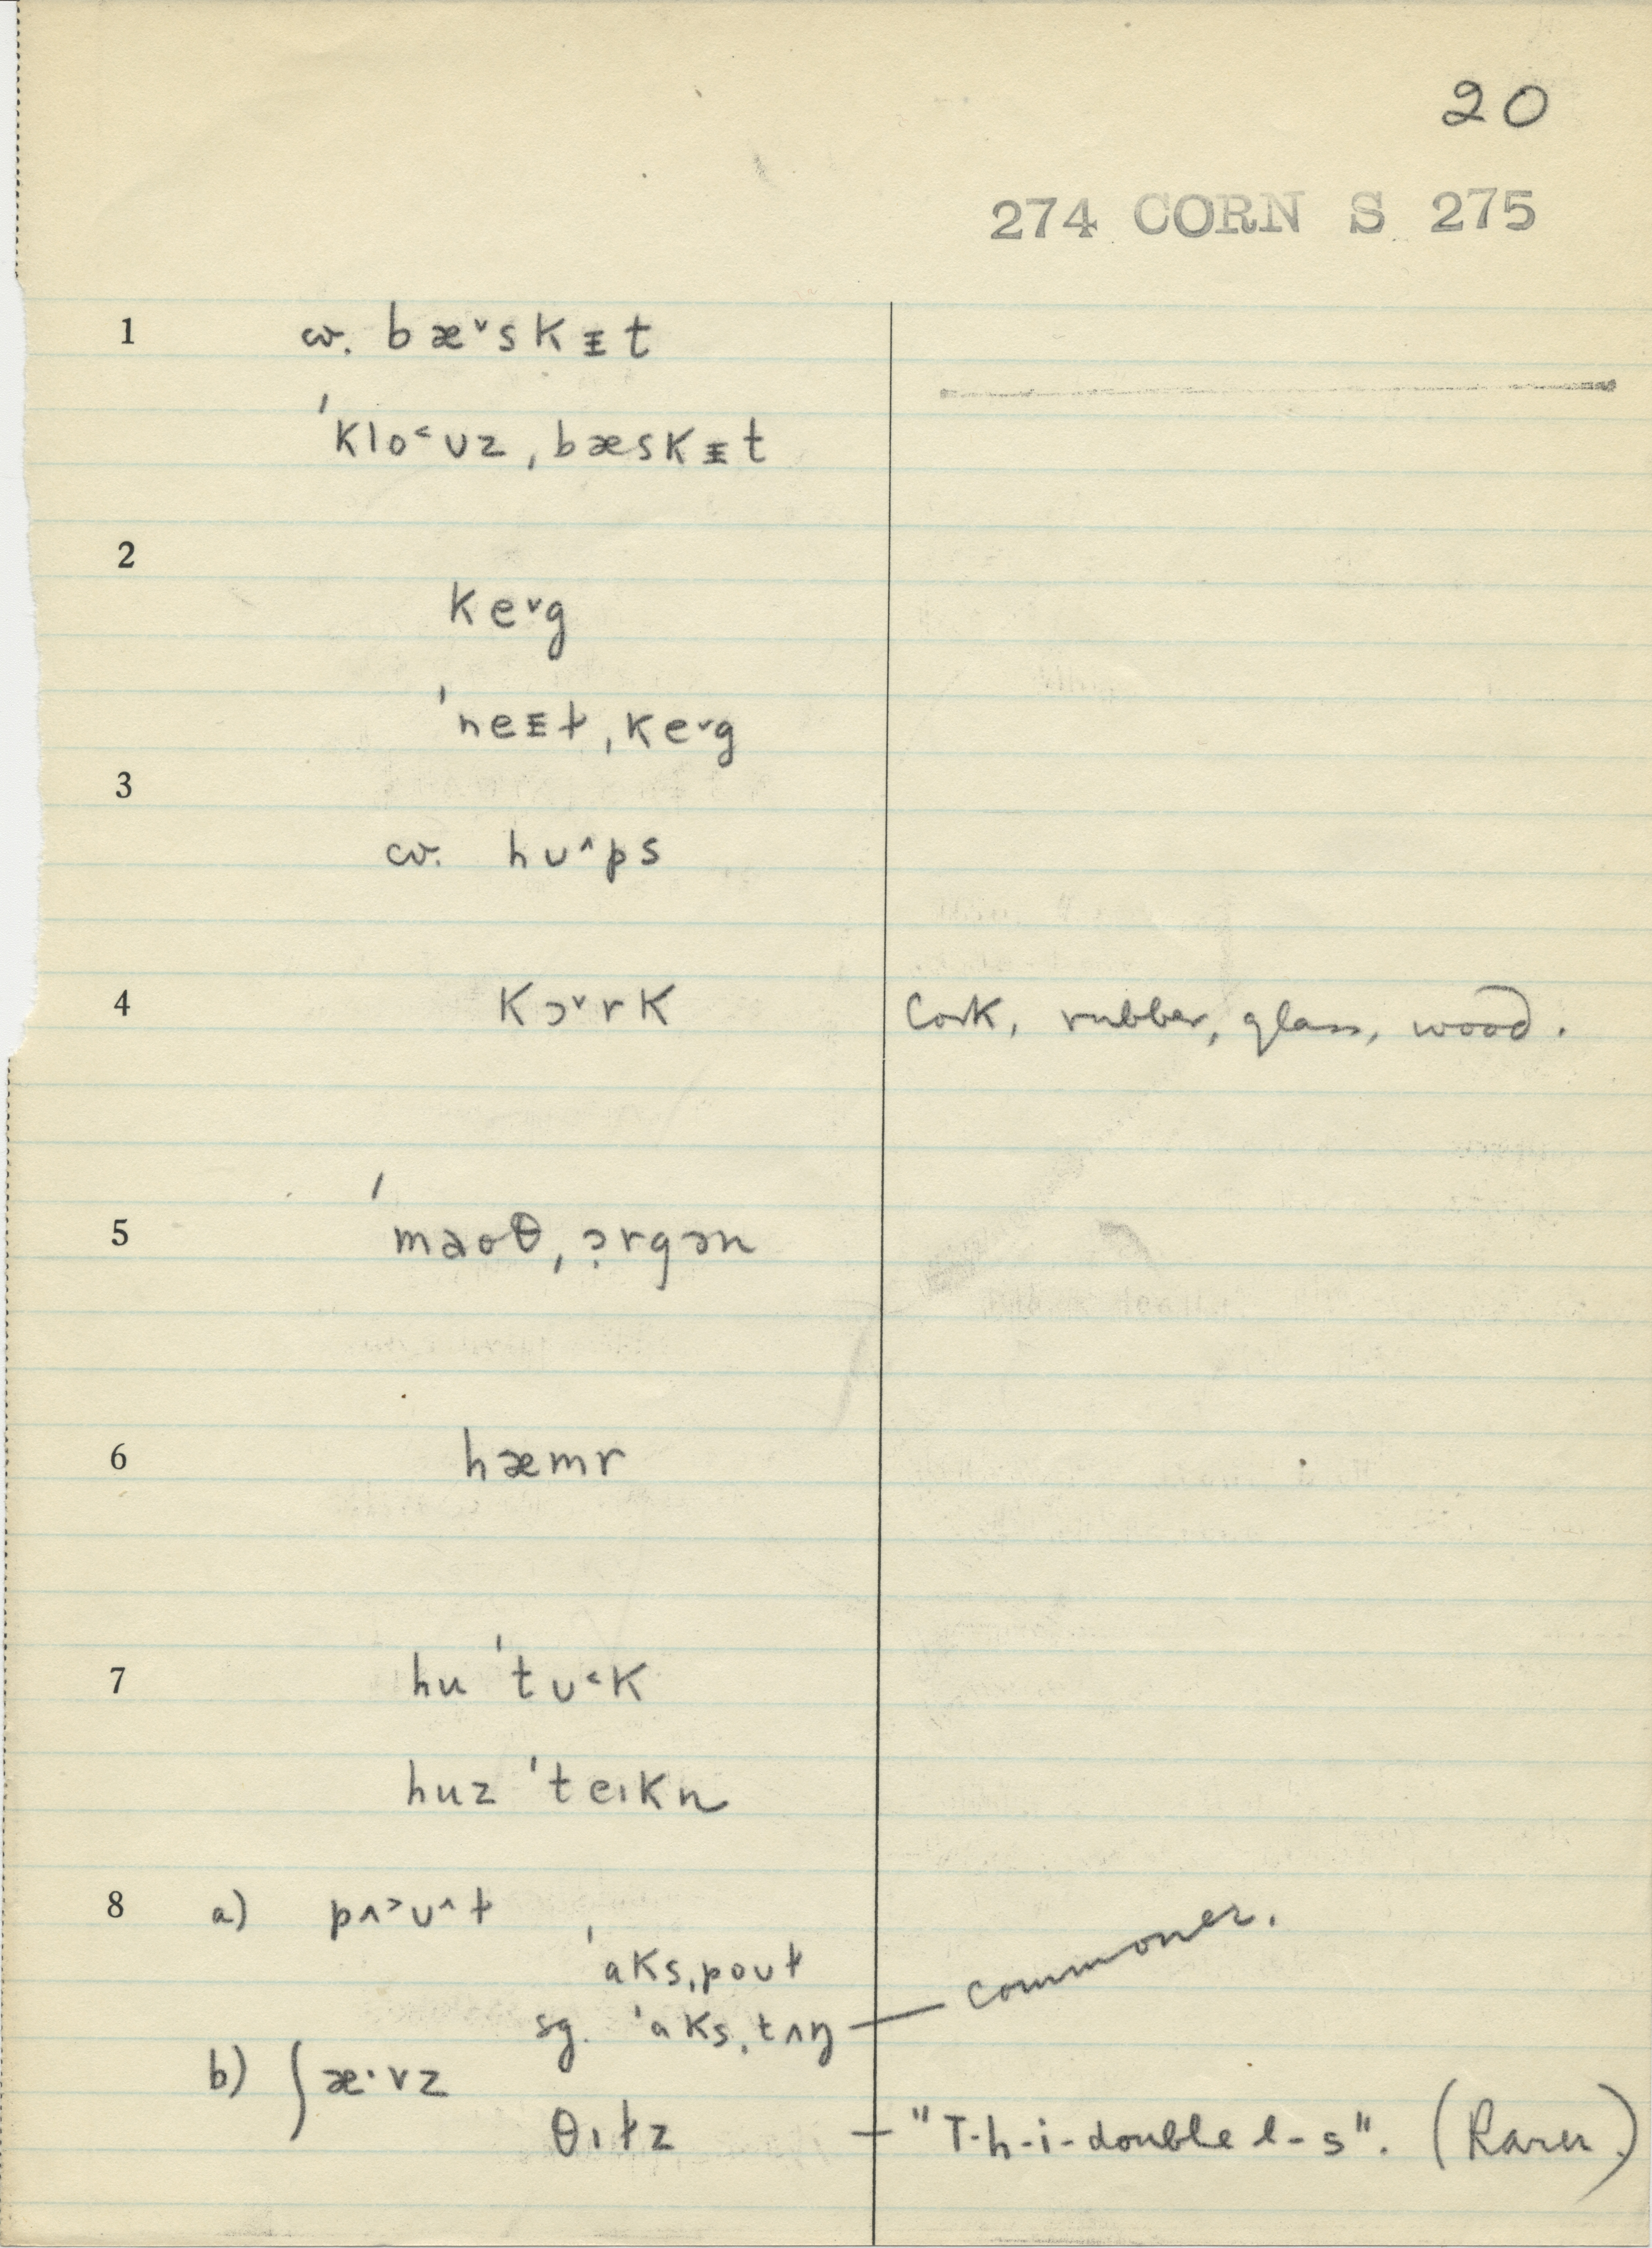 20
274 CORN S 275
1 cv. bæ˅skᵻt
ˈklo˂ʊz ˌbæskᵻt
2
ke˅g
ˈneᵻɫ ˌke˅g
3
cv. hʊ˄ps
4 kɔ˅rk Cork, rubber, glass, wood.
5 ˈmaoθ ˌɔrgən
6 hæmr
7 hu ˈtʊ˂k
huz ˈteɪkn
8 a) pʌ˃ʊ˄ɫ
ˈaks ˌpoʊɫ
sg. ˈaks ˌtʌŋ — commoner.
b) ʃæ·vz
θɪɫz — "T-h-i-double l-s". (Rarer.)